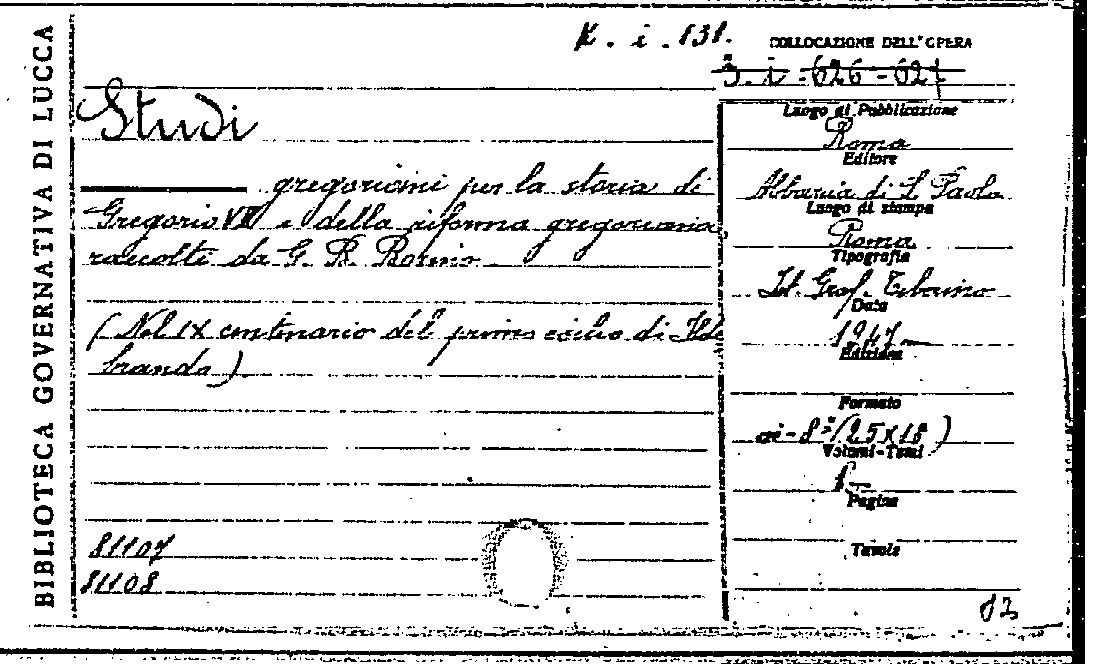 BIBLIOTECA GOVERNATIVA DI LUCCA
K. i. 131.
COLLOCAZIONE DELL'OPERA
3. i - 626-627
Studi
gregoriani per la storia di
Gregorio VII e della riforma gregoriana
raccolti da G. B. Borino
(Nel IX centenario del primo esilio di Ilde
brando)
81107
81108
Luogo di Pubblicazione
Roma
Editore
Abbazia di S. Paolo
Luogo di stampa
Roma
Tipografia
Ist. Graf. Tiberino
Data
1947
Edizione
Formato
in-8° (25x18)
Volumi-Tomi
1
Pagine
Tavole